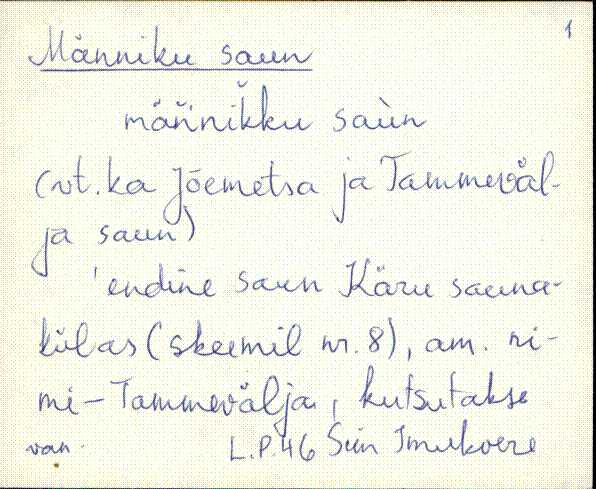 1
Männiku saun
mäǹnikku saùn
(vt. ka Jõemetsa ja Tammeväl-
ja saun)
'endine saun Käru sauna-
külas (skeemil nr. 8), am. ni-
mi - Tammevälja, kutsutakse
van. L.P. 46 Siin Imukvere